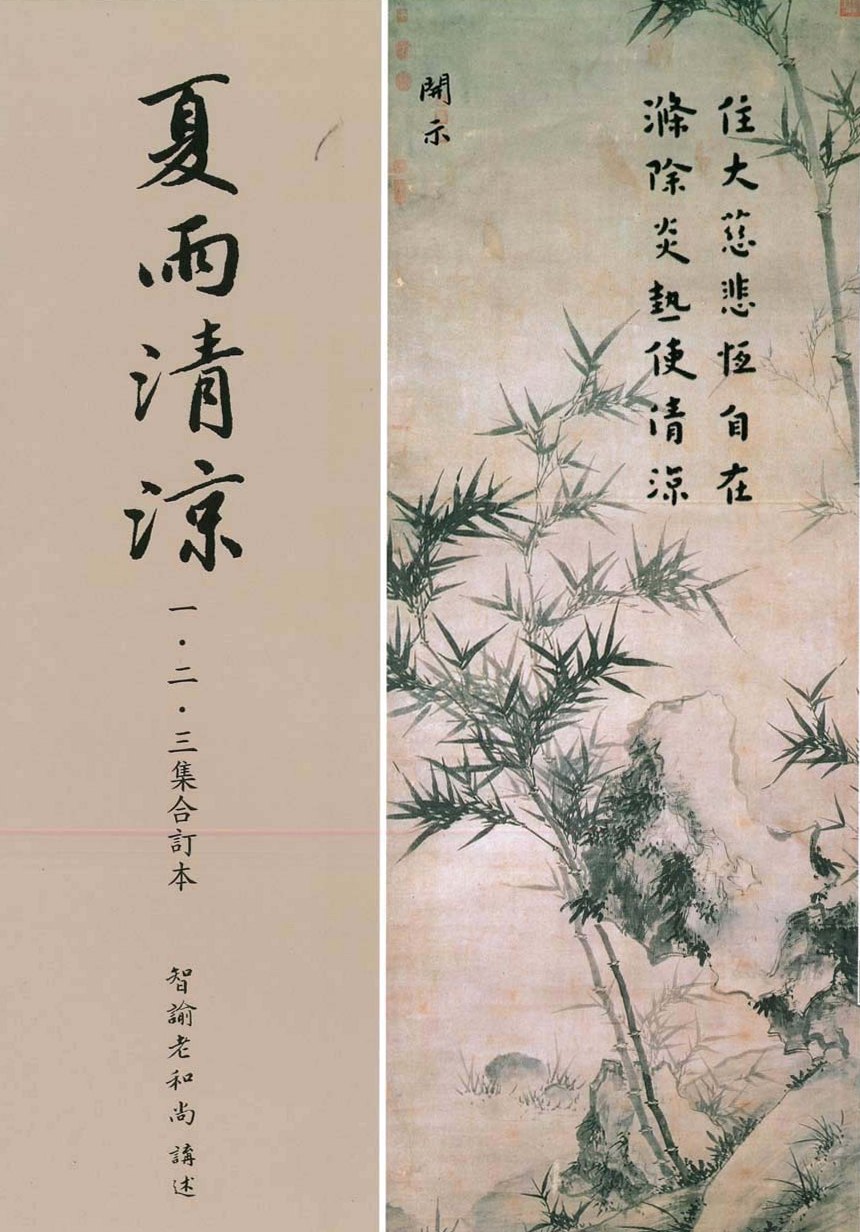 夏雨清涼
一・二・三集合訂本
智諭老和尚講述
住大慈悲恆自在
滌除炎熱使清涼
開示